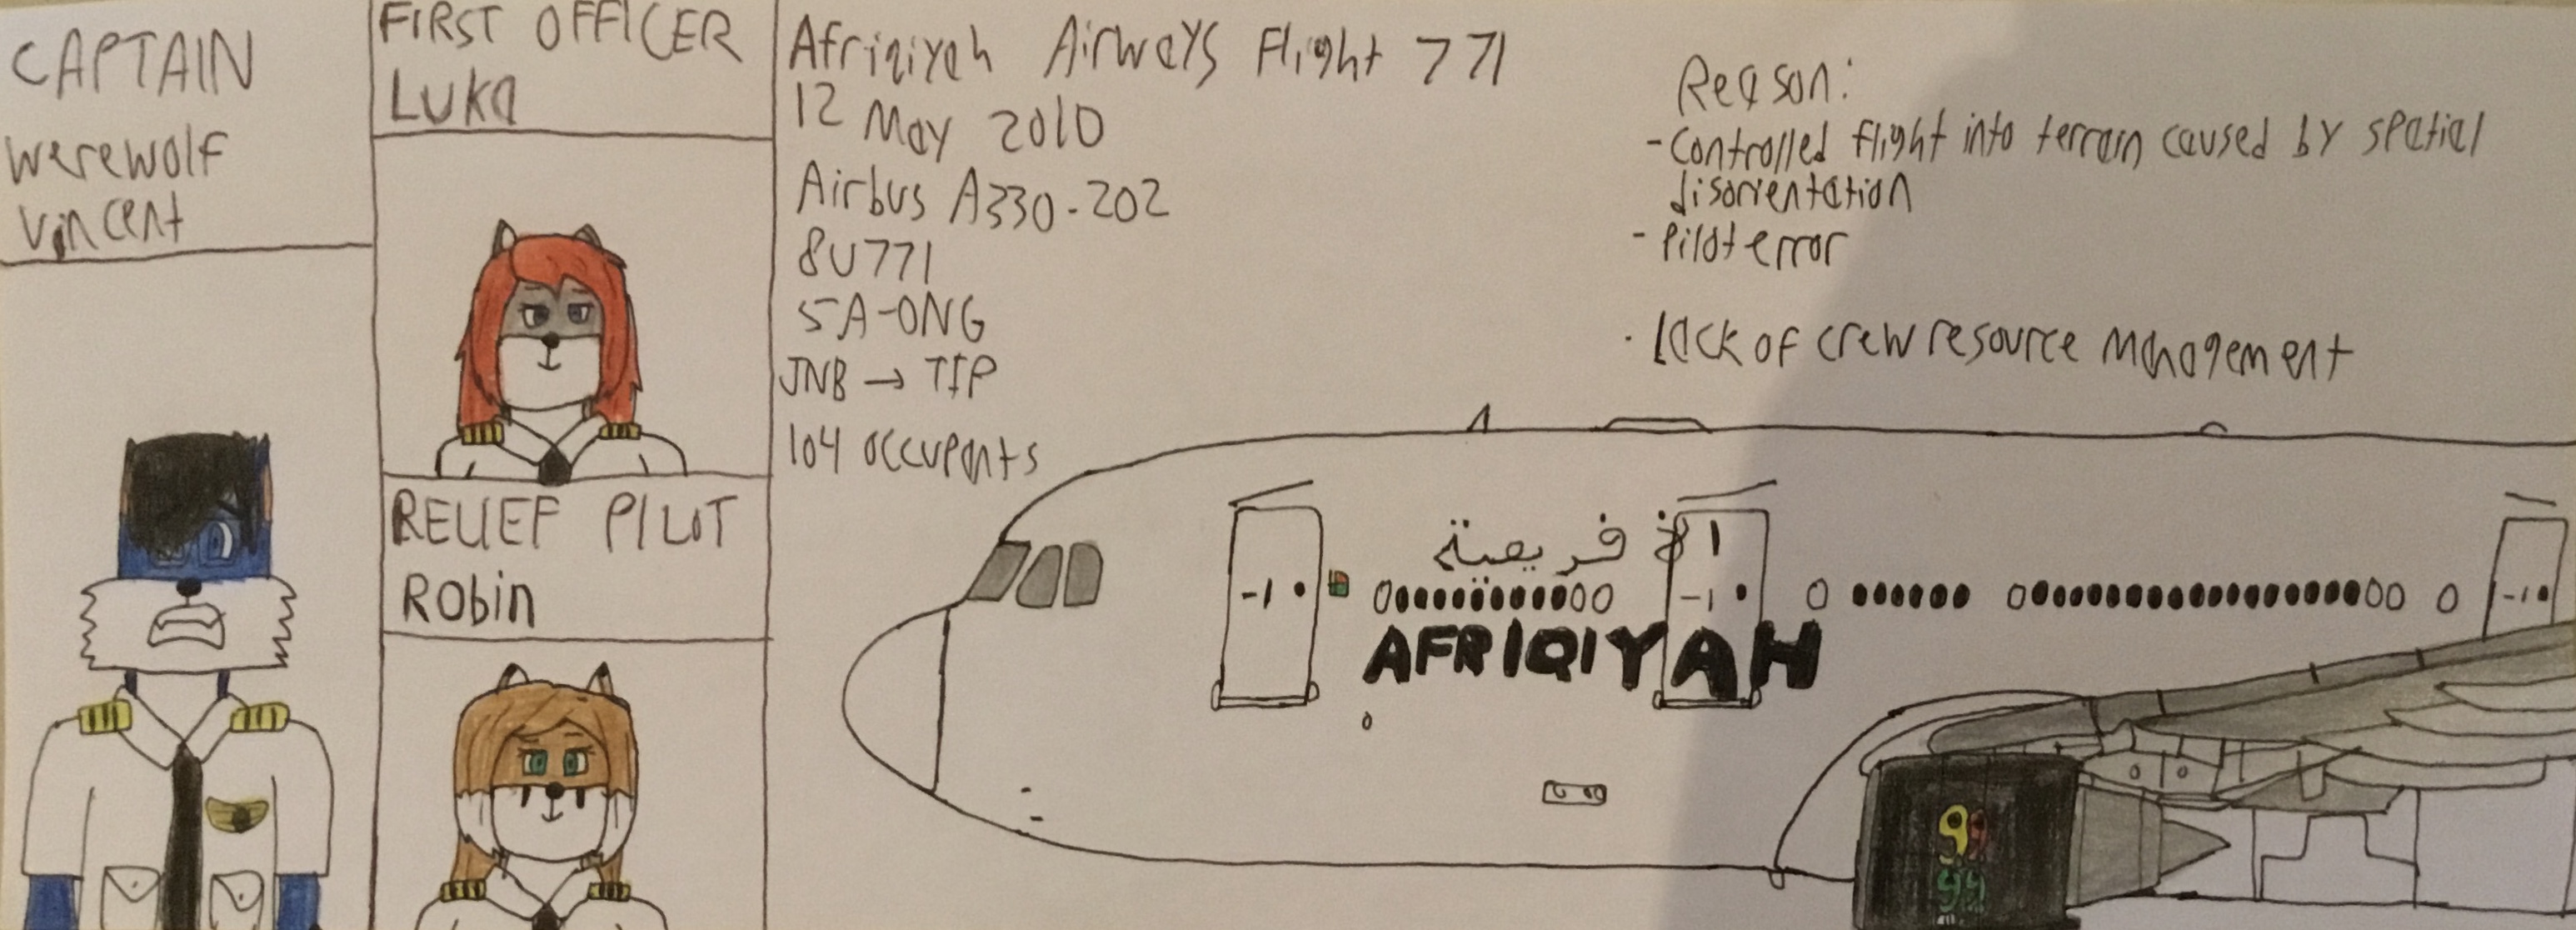 CAPTAIN
Werewolf
Vincent
FIRST OFFICER
LUKA
RELIEF PILOT
Robin
Afriqiyah Airways Flight 771
12 May 2010
Airbus A330-202
8U771
5A-ONG
JNB → TIP
104 occupants
Reason:
-Controlled flight into terrain caused by spatial
disorientation
- Pilot error
· Lack of crew resource management
-1
-1
-1
AFRIQIYAH
99
99